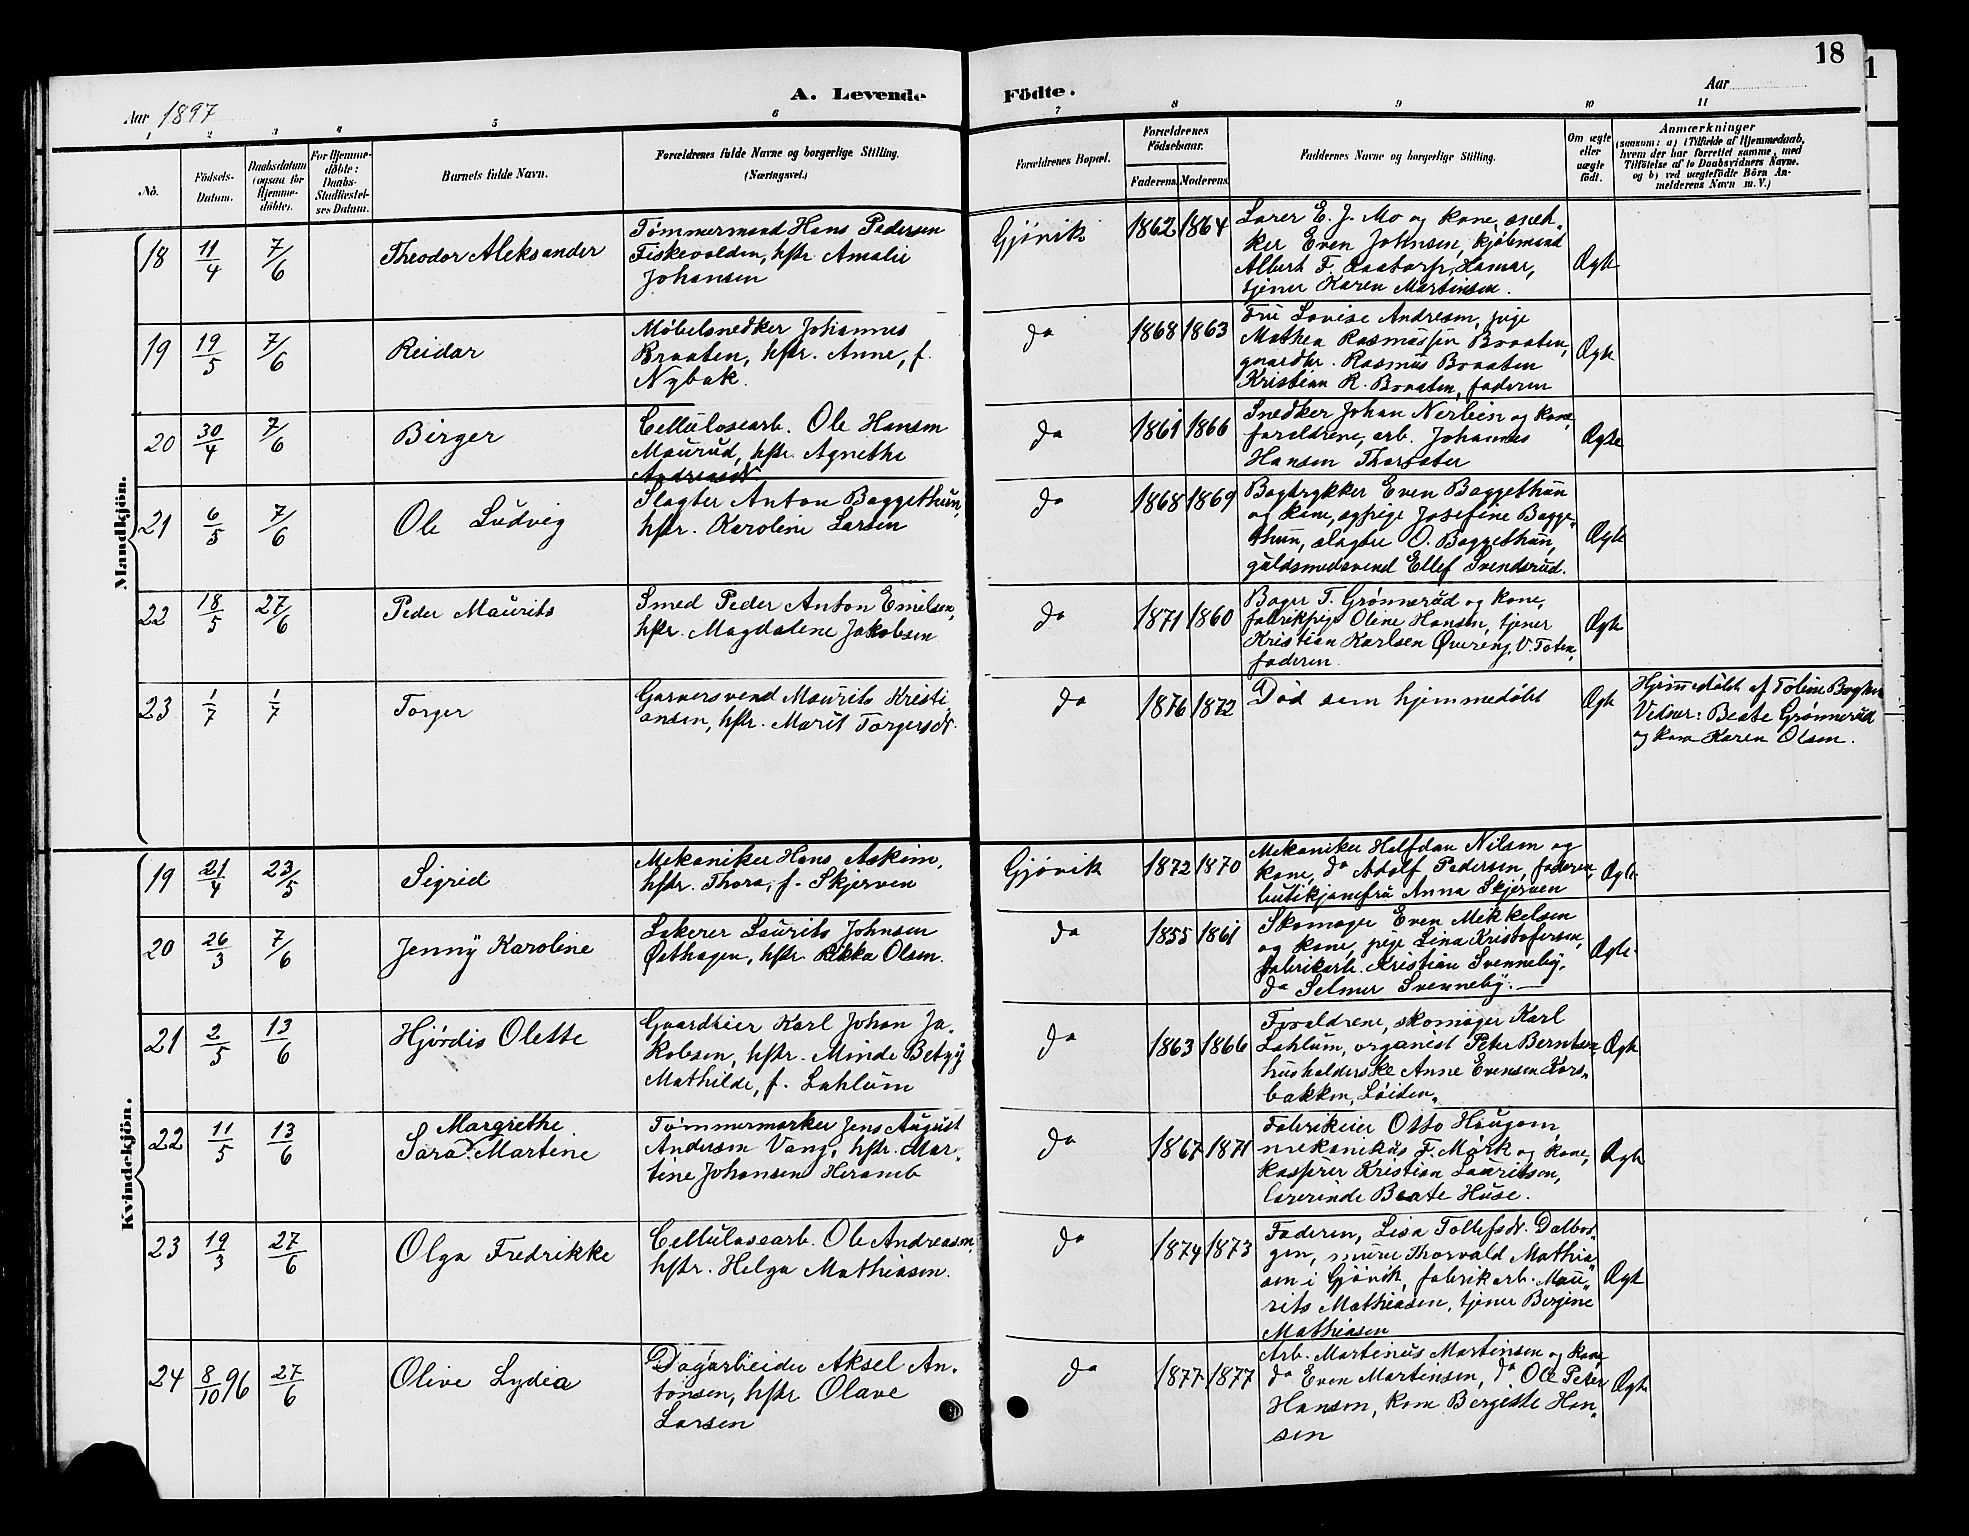 18
Aar 1897
A. Levende Födte.
Aar
1 2 3 4 5 6 7 8 9 10 11
No.
Födsels-
Datum.
Daabsdatum
(ogsaa for
Hjemme-
döbte).
For Hjemme-
döbte:
Daabs-
Stadfæstel-
ses Datum.
Barnets fulde Navn.
Forældrenes fulde Navne og borgerlige Stilling.
(Næringsvei.)
Forældrenes Bopæl.
Forældrenes
Födselsaar.
Faderens. Moderens.
Faddernes Navne og borgerlige Stilling.
Om ægte
eller
uægte
födt.
Anmærkninger
(saasom: a) i Tilfælde af Hjemmedaab,
hvem der har forrettet samme, med
Tilföielse af to Daabsvidners Navne.
og b) ved uægtefödte Börn An-
melderens Navn m. V.)
Mandkjön.
18 11/4 7/6 Theodor Aleksander
Tømmermand Hans Pedersen
Fiskevolden, hstr. Amalie
Johansen
Gjøvik 1862 1864
Lærer E. J. Mo og kone, snek-
ker Even Johnsen, kjøbmand
Albert F. Hamar,
tjener Karen Martinsen.
Ægte
19 19/5 7/6 Reidar
Møbelsnedker Johannes
Braaten, hstr. Anne, f.
Nybak.
do 1868 1863
Fru Lovise Andresen, pige
Mathea Rasmussen Braaten,
gaardbr. Rasmus Braaten
Kristian R. Braaten, faderen
Ægte
20 30/4 7/6 Birger
Cellulosearb. Ole Hansen
Maurud, hstr. Agnethe
Andreasdt
do 1861 1866
Snedker Johan Nerlien og kone,
forældrene, arb. Johannes
Hansen Thorsæter
Ægte
21 6/5 7/6 Ole Ludvig
Slagter Anton Baggethun,
hstr. Karoline Larsen
do 1868 1869
Bogtrykker Even Baggethun
og kone, og pige Josefine Bagge-
thun, slagter O. Baggethun,
guldsmedsvend Ellef Svendsrud.
Ægte
22 18/5 27/6 Peder Maurits
Smed Peder Anton Emilsen,
hstr. Magdalene Jakobsen
do 1871 1860
Bager T. Grønnerud og kone,
fabrikpige Oline Hansen, tjener
Kristian Karlsen Øvereng, V. Toten,
faderen.
Ægte
23 1/7 1/7 Torger
Garversvend Maurits Kristi-
ansen, hstr. Marit Torgersdt.
do 1876 1872
Død som hjemmedøbt
Ægte
Hjemmedøbt af Toline
Vidner: Beate Grønnerud
og kone Karen Olsen.
Kvindekjön.
19 21/4 23/5 Sigrid
Mekaniker Hans Askim,
hstr. Thora, f. Skjerven
Gjøvik 1872 1870
Mekaniker Halfdan Nilsen og
kone, do Adolf Pedersen, faderen,
butikjomfru Anna Skjerven
Ægte
20 26/3 7/6 Jenny Karoline
Lakerer Laurits Johnsen
Østhagen, hstr. Rikka Olsen.
do 1855 1861
Skomager Even Mikkelsen
og kone, pige Lina Kristofersen,
fabrikarb. Kristian Svenneby,
do Selmer Svenneby.
Ægte
21 2/5 13/6 Hjørdis Olette
Gaardeier Karl Johan Ja-
kobsen, hstr. Minde Betzy
Mathilde, f. Lahlum
do 1863 1866
Forældrene, skomager Karl
Lahlum, organist Peter Berntsen,
husholderske Anne Evensen Kors-
bakken, Løiten.
Ægte
22 11/5 13/6 Margrethe
Sara Martine
Tømmermærker Jens August
Andersen Vang, hstr. Mar-
tine Johansen Heramb
do 1867 1871
Fabrikeier Otto Haugom,
mekanikus F. Mørk og kone,
kasserer Kristian Lauritsen,
lærerinde Beate Huse.
Ægte
23 19/3 27/6 Olga Fredrikke
Cellulosearb. Ole Andreasen,
hstr. Helga Mathiasen.
do 1874 1873
Faderen, Lisa Tollefsdt. Dalbor-
gen, murer Thorvald Mathia-
sen i Gjøvik, fabrikarb. Mau-
rits Mathiasen, tjener Bergine
Mathiasen
Ægte
24 8/10 96 27/6 Olive Lydia
Dagarbeider Aksel An-
tonsen, hstr Olave
Larsen
do 1877 1877
Arb. Martinus Martinsen og kone,
do Even Martinsen, do Ole Peter
Hansen, kone Bergitte Han-
sen
Ægte